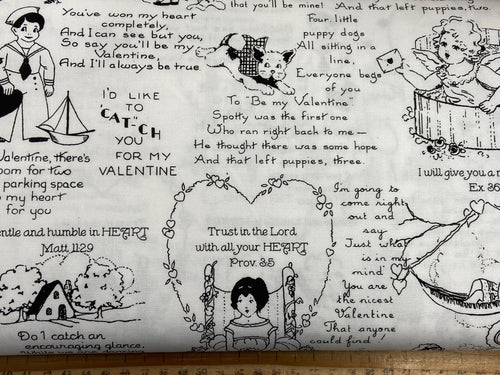 You've won my heart
completely,
And I can see but you,
So say you'll be my
Valentine,
And I'll always be true
that you'll be mine!
And that left puppies, two.
Four little
puppy dogs
All sitting in a
line,
Everyone begs
of you
To "Be my Valentine".
Spotty was the first one
Who ran right back to me—
He thought there was some hope
And that left puppies, three.
I'D LIKE
TO
"CAT"-CH
YOU
FOR MY
VALENTINE
Valentine, there's
for two
parking space
my heart
for you
I will give you a
and humble in HEART
Matt 11:29
Trust in the Lord
with all your HEART
Prov. 3:5
I'm going to
come right
out and
say
Just what
is in my
mind
You are
the nicest
Valentine
That anyone
could find!
Do I catch an
encouraging glance,